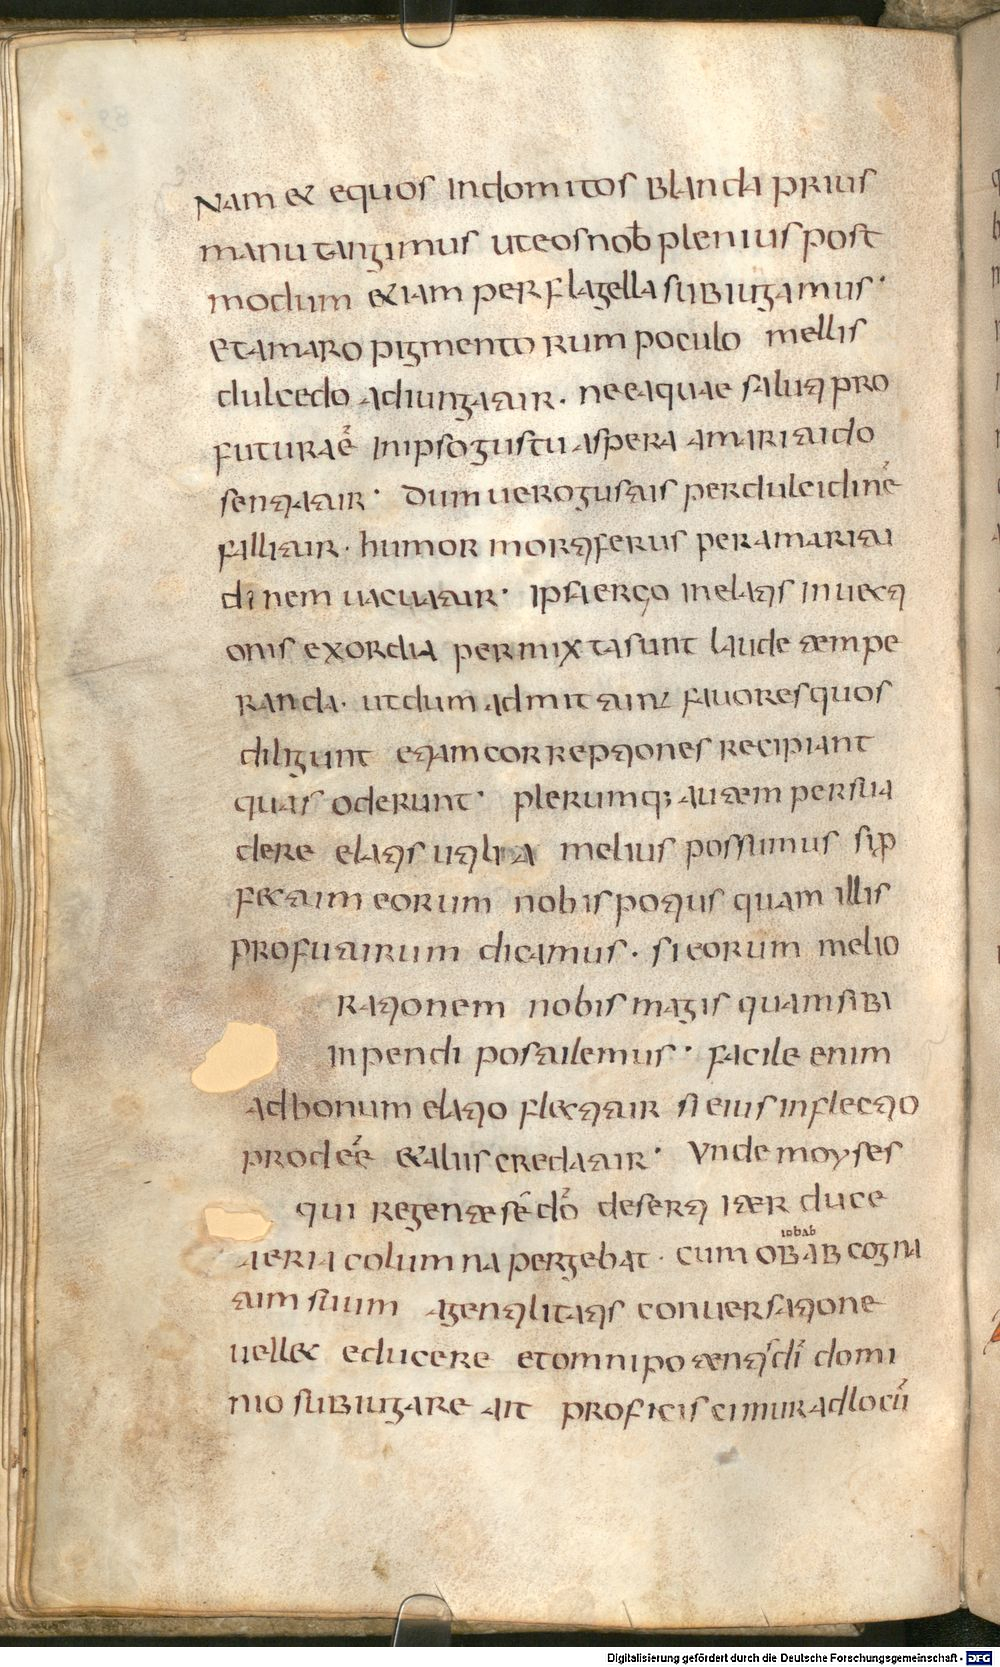 Nam & equos indomitos blanda prius
manu tangimus uteos nob̄ plenius post
modum &iam per flagella subiugamus·
et amaro pigmentorum poculo mellis
dulcedo adiungatur. ne ea quae saluti pro
futura ē̄ in ipso gustu aspera amaritudo
sentiatur· Dum uero gustus per dulcidinē
fallitur· humor mortiferus per amaritu
dinem uacuatur· Ipsi ergo in elatis inuecti
onis exordia permixta sunt laude tempe
randa· ut dum admittunt fauores quos
diligunt etiam correptiones recipiant
quas oderunt· plerumq; autem persua
dere elatis utilia melius possumus si p̱
fectum eorum nobis potius quam illis
profuturum dicamus. si eorum melio
rationem nobis magis quam sibi
inpendi postulemus· facile enim
ad bonum elatio flectitur si eius inflectio
prodeē̄ & aliis credatur· Vnde moyses
qui regente sē dō deserti iter duce
aeria columna pergebat· cum obab cogna
iobab
tum suum a gentilitatis conuersatione
uell& educere et omnipotentis dī domi
nio subiugare ait proficiscimur ad locū
Digitalisierung gefördert durch die Deutsche Forschungsgemeinschaft - DFG